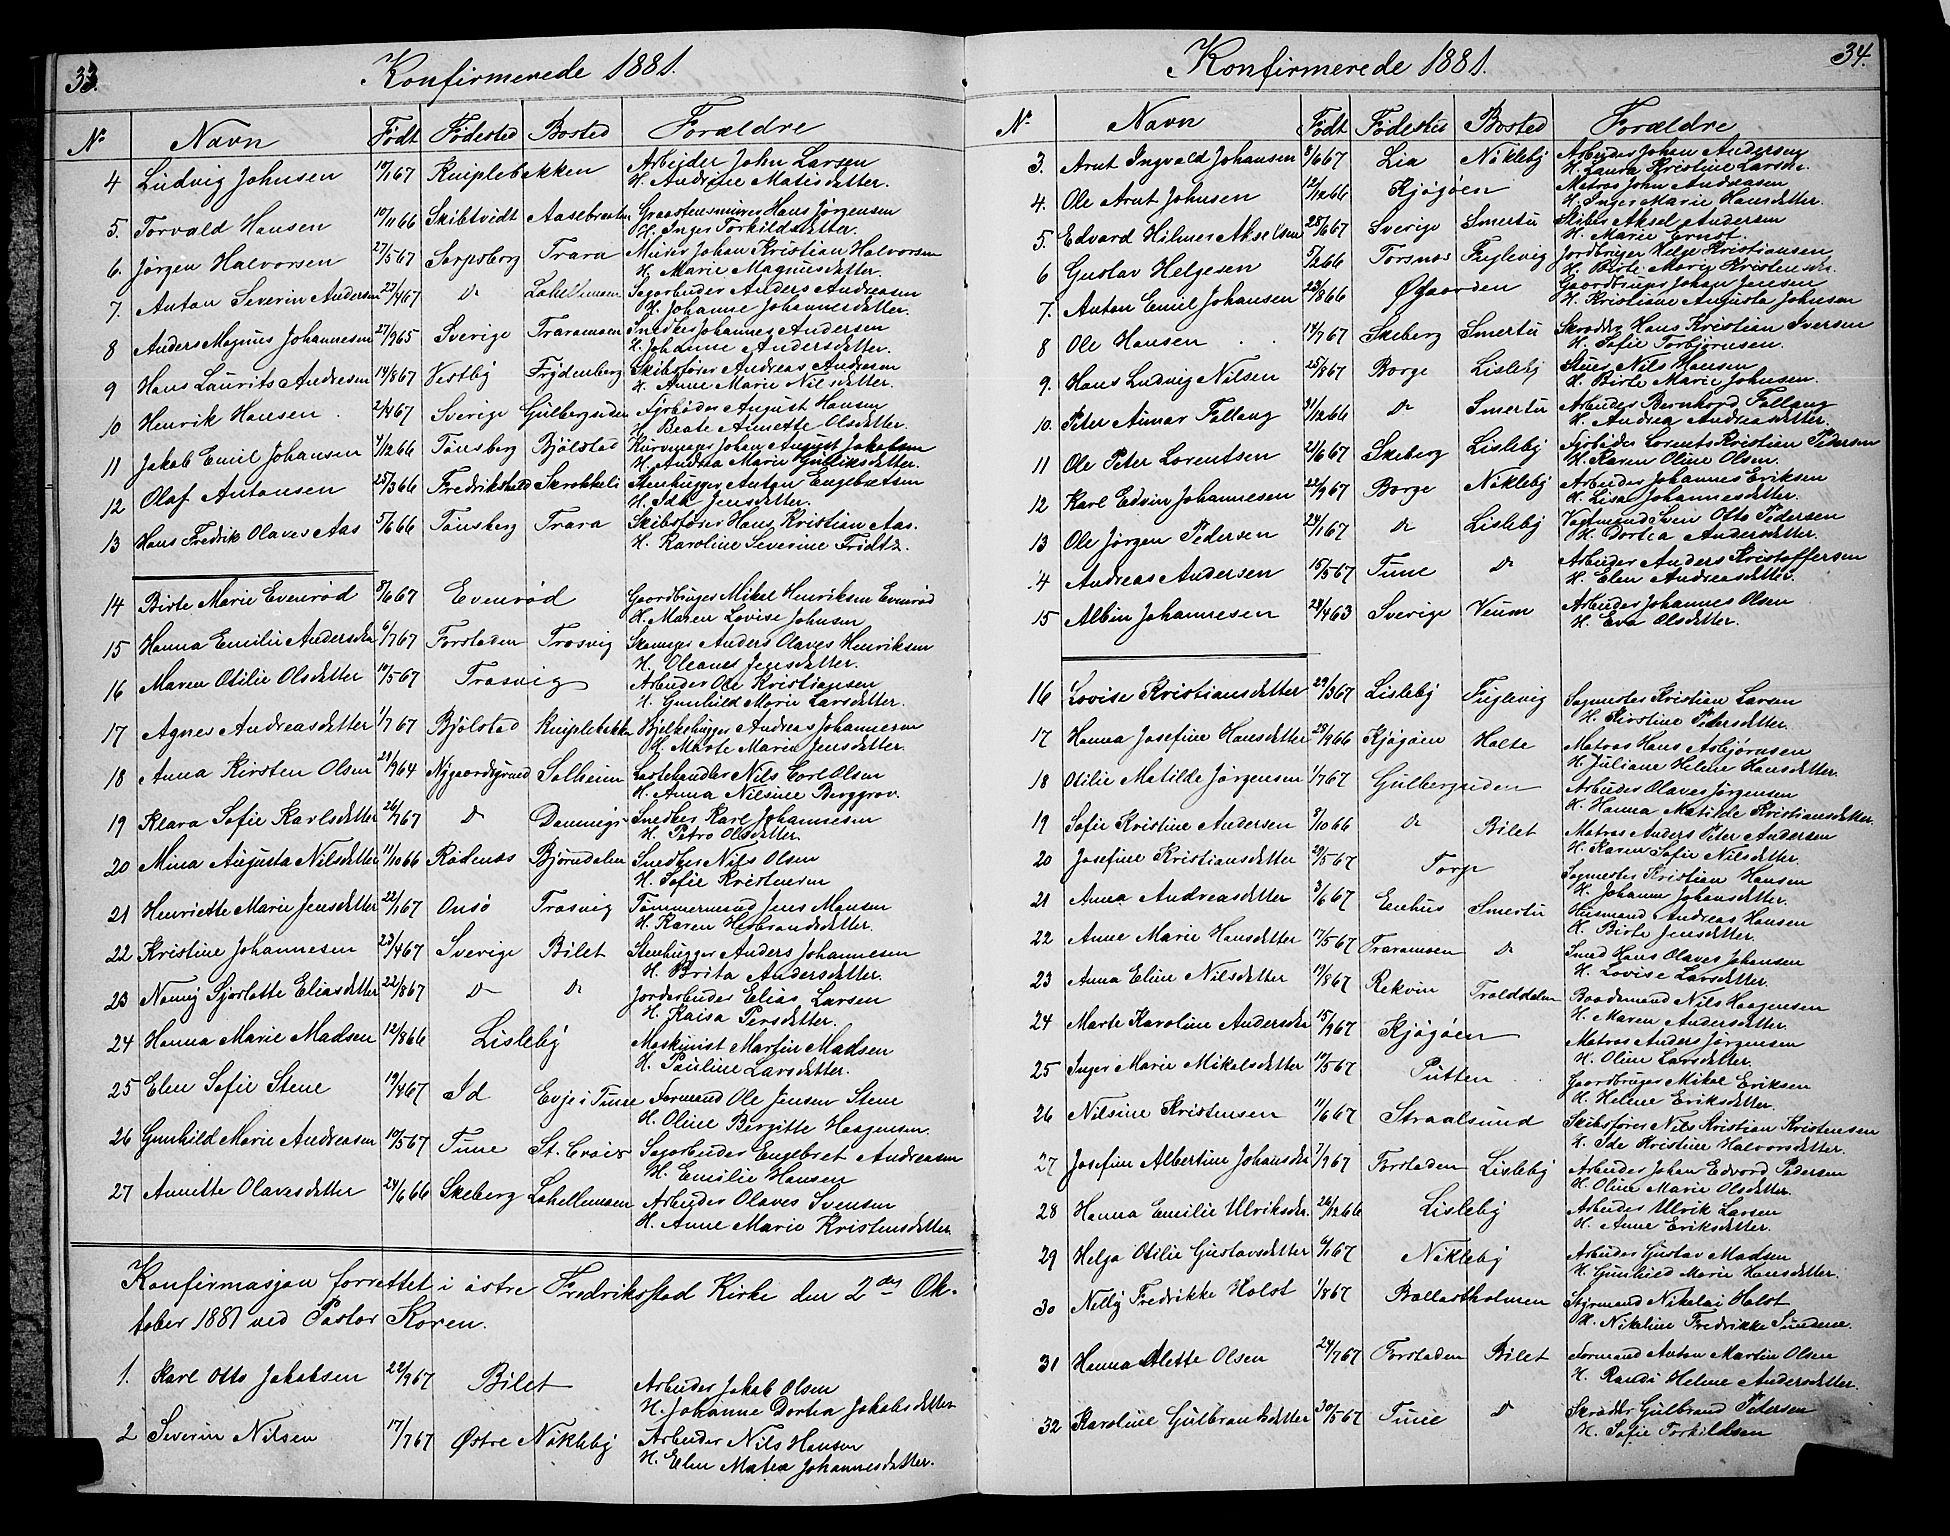 33.
Konfirmerede 1881.
No Navn Født Fødested Bosted Forældre
4 Ludvig Johnsen 10/1 67 Kniplebakken Arbeider John Larsen
H. Andrine Matisdetter.
5. Torvald Hansen 10/11 66 Skibtvidt Graastensmurer Hans Jørgensen
H. Inger Torkildsdetter.
6. Jørgen Halvorsen 27/5 67 Sarpsborg Trara Murer Johan Kristian Halvorsen
H. Marie Magnusdetter.
7. Anton Severin Andersen 23/4 67 Do Lahellemoen Sagarbeider Anders Andreasen
H. Johanne Johannesdetter.
8 Anders Magnus Johannesen 27/9 65 Sverige Traramoen Snedker Johannes Andersen
H. Johanne Andersdetter.
9 Hans Laurits Andresen 14/8 67 Vestby Frydenberg Skibsfører Andreas Andresen
H. Anne Marie Nilsdetter.
10 Henrik Hansen. 2/4 67 Sverige Gulbergsiden Fyrbøder August Hansen
H. Beate Annette Olsdetter.
11 Jakob Emil Johansen 4/12 66 Tønsberg Bjølstad Kurvmager Johan August Jakobsen
H. Andrea Marie Guliksdetter.
12 Olaf Antonsen 25/3 66 Fredrikshald Skrokkeli Stenhugger Anton Engebretsen
H. Ida Jensdetter.
13 Hans Fredrik Olaves Aas 5/6 66 Tønsberg Trara Skibsfører Hans Kristian Aas.
H. Karoline Severine Fridtz.
14 Birte Marie Evenrød 8/6 67 Evenrød Gaardbruger Mikel Henriksen Evenrød
H. Maren Lovise Johnsen
15 Hanna Emilie Andersdtr 6/7 67 Forstaden Trosvig Skomager Anders Olaves Henriksen
H. Oleanes Jensdetter.
16 Maren Otilie Olsdetter 10/5 67 Trosvig Arbeider Ole Kristiansen
H. Gunhild Marie Larsdetter.
17 Agnes Andreasdetter 1/7 67 Bjølstad Kniplebakken Bjelkehugger Andreas Johannesen
H. Marte Marie Jensdetter.
18 Anna Kirsten Olsen 21/9 64 Nygaardsgrund Solheim Lastehandler Nils Carl Olsen
H. Anna Nilsine Berggrav.
19 Klara Sofie Karlsdetter 26/7 67 Do Snedker Karl Johannesen
H. Petra Olsdetter.
20 Mina Augusta Nilsdetter 11/10 66 Rødenæs Bjørndalen Snedker Nils Olsen
H. Sofie Kristensen
21 Henriette Marie Jensdetter 22/1 67 Onsø Trosvig Tømmermand Jens Monsen
H. Karen Hebrandsdetter.
22 Kristine Johannesen 23/4 67 Sverige Bilet Stenhugger Anders Johannesen
H. Brita Andersdetter.
23 Nanny Sjarlotte Eliasdetter 22/8 67 Do Do Jordarbeider Elias Larsen
H. Kaisa Persdetter.
24 Hanna Marie Madsen 12/8 66 Lisleby Maskinist Martin Madsen
H. Pauline Larsdetter.
25 Elen Sofie Stene 19/4 67 Id Evje i Tune Formand Ole Jensen Stene
H. Oline Bergitte Haagensen.
26 Gunhild Marie Andreasen 10/5 67 Tune St. Croix Sagarbeider Engebret Andreasen
H. Emilie Hansen
27 Annette Olavesdetter 24/6 66 Skeberg Lahellemoen Arbeider Olaves Svensen
H. Anne Marie Kristensdetter.
Konfirmasjon forrettet i østre Fredriksstad Kirke den 2den Ok-
tober 1881 ved Pastor Koren.
1. Karl Otto Jakobsen 22/9 67 Bilet Arbeider Jakob Olsen
H. Johanne Dortea Jakobsdetter
2 Severin Nilsen 17/7 67 Østre Nøkleby Arbeider Nils Hansen
H. Elen Matea Johannesdetter.
34.
Konfirmerede 1881.
No Navn Født Fødested Bosted Forældre
3. Arnt Ingvald Johansen 8/6 67 Lia Nøkleby Arbeider Johan Andersen
H. Laura Kristine Larsdtr.
4. Ole Arnt Johnsen 12/12 66 Kjøgøen Matros John Andreasen
H. Inger Marie Hansdetter.
5. Edvard Hilmer Akselsen 25/6 67 Sverige Smertu Skiber Aksel Andersen
H. Marie Ernst.
6 Gustav Helgesen 5/2 66 Torsnæs Fuglevig Jordbruger Helge Kristiansen
H. Birte Marie Kristensdtr.
7. Anton Emil Johansen 23/8 66 Øgaarden Gaardbruger Johan Jensen
H. Kristiane Augusta Johnsen
8 Ole Hansen 14/7 67 Skeberg Smertu Skrædder Hans Kristian Iversen
H. Sofie Torbjørnsen.
9. Hans Ludvig Nilsen 25/8 67 Borge Lisleby Stuer Nils Hansen
H. Birte Marie Johnsen.
10. Peter Aimar Fallang 31/12 66 Do Smertu Arbeider Bernhard Fallang
H. Andrea Andreasdetter.
11 Ole Peter Lorentsen 21/6 67 Skeberg Lisleby Arbeider Lorents Kristian Pedersen
H. Karen Oline Olsen.
12 Karl Edvin Johannesen 22/9 67 Borge Nøkleby Arbeider Johannes Eriksen
H. Lisa Johannesdetter.
13 Ole Jørgen Pedersen 24/1 67 Do Lisleby Vagtmand Sven Otto Pedersen
H. Dortea Andersdetter.
14 Andreas Andersen 15/5 67 Tune Do Arbeider Anders Kristoffersen
H. Elen Andreasdetter.
15 Albin Johannesen 28/4 63 Sverige Veum Arbeider Johannes Olsen
H. Eva Olsdetter.
16 Lovise Kristiansdetter 29/3 67 Lisleby Fuglevig Sagmester Kristian Larsen
H. Kirstine Pedersdetter.
17 Hanna Josefine Hansdetter 23/9 66 Kjøgøen Holte Matros Hans Asbjørnsen
H. Juliane Helene Hansdetter.
18 Otilie Matilde Jørgensen 1/7 67 Gulbergsiden Arbeider Olaves Jørgensen
H. Hanna Matilde Kristiansdetter.
19 Sofie Kristine Andersen 3/10 66 Do Bilet Matros Anders Peter Andersen
H. Karen Sofie Nilsdetter.
20 Josefine Kristiansdetter 29/5 67 Torp Sagmester Kristian Hansen
H. Johanne Johansdetter.
21 Anna Andreasdetter 3/6 67 Enhus Smertu Husmand Andreas Hansen
H. Birte Jensdetter.
22 Anne Marie Hansdetter 17/5 67 Traramoen Do Smed Hans Olaves Johansen
H. Lovise Larsdetter.
23 Anna Eline Nilsdetter 19/8 67 Rekvin Tralddalen Baadsmand Nils Haagensen
H. Maren Andersdetter.
24 Marte Karoline Andersdtr 15/9 67 Kjøgøen Matros Anders Jørgensen
H. Oline Larsdetter.
25 Inger Marie Mikalsdetter 10/5 67 Putten Gaardbruger Mikal Eriksen
H. Helene Eriksdetter.
26 Nilsine Kristensen 11/6 67 Straalsund Skibsfører Nils Kristian Kristensen
H. Ida Kristine Halvorsdetter.
27 Josefine Albertine Johansdtr 7/9 67 Forstaden Lisleby Arbeider Johan Edvard Pedersen
H. Oline Marie Olsdetter.
28 Hanna Emilie Ulriksdtr. 26/12 66 Lisleby Arbeider Ulrik Larsen
H. Anne Eriksdetter.
29 Helga Otilie Gustavsdetter 6/1 67 Nøkleby Arbeider Gustav Madsen
H. Gunhild Marie Hansdetter.
30 Nelly Fredrikke Holst 1/8 67 Ballastholmen Styrmand Nikolai Holst
H. Nikoline Fredrikke Sundene.
31 Hanna Alette Olsen 24/7 67 Forstaden Bilet Formand Anton Martin Olsen
H. Randi Helene Andersdetter.
32 Karoline Gulbrandsdetter 30/5 67 Tune Do Skrædder Gulbrand Petersen
H. Sofie Torkildsen